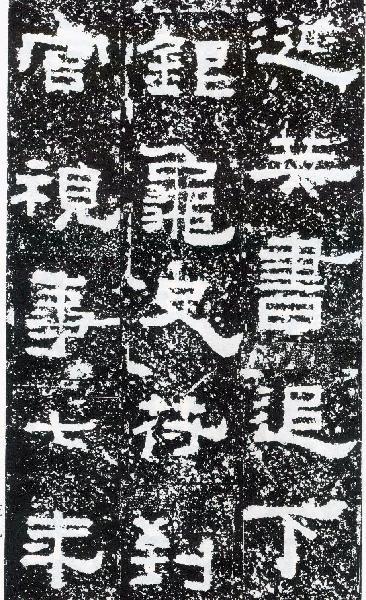 莢書追下
銀龜史符到
官視事七年